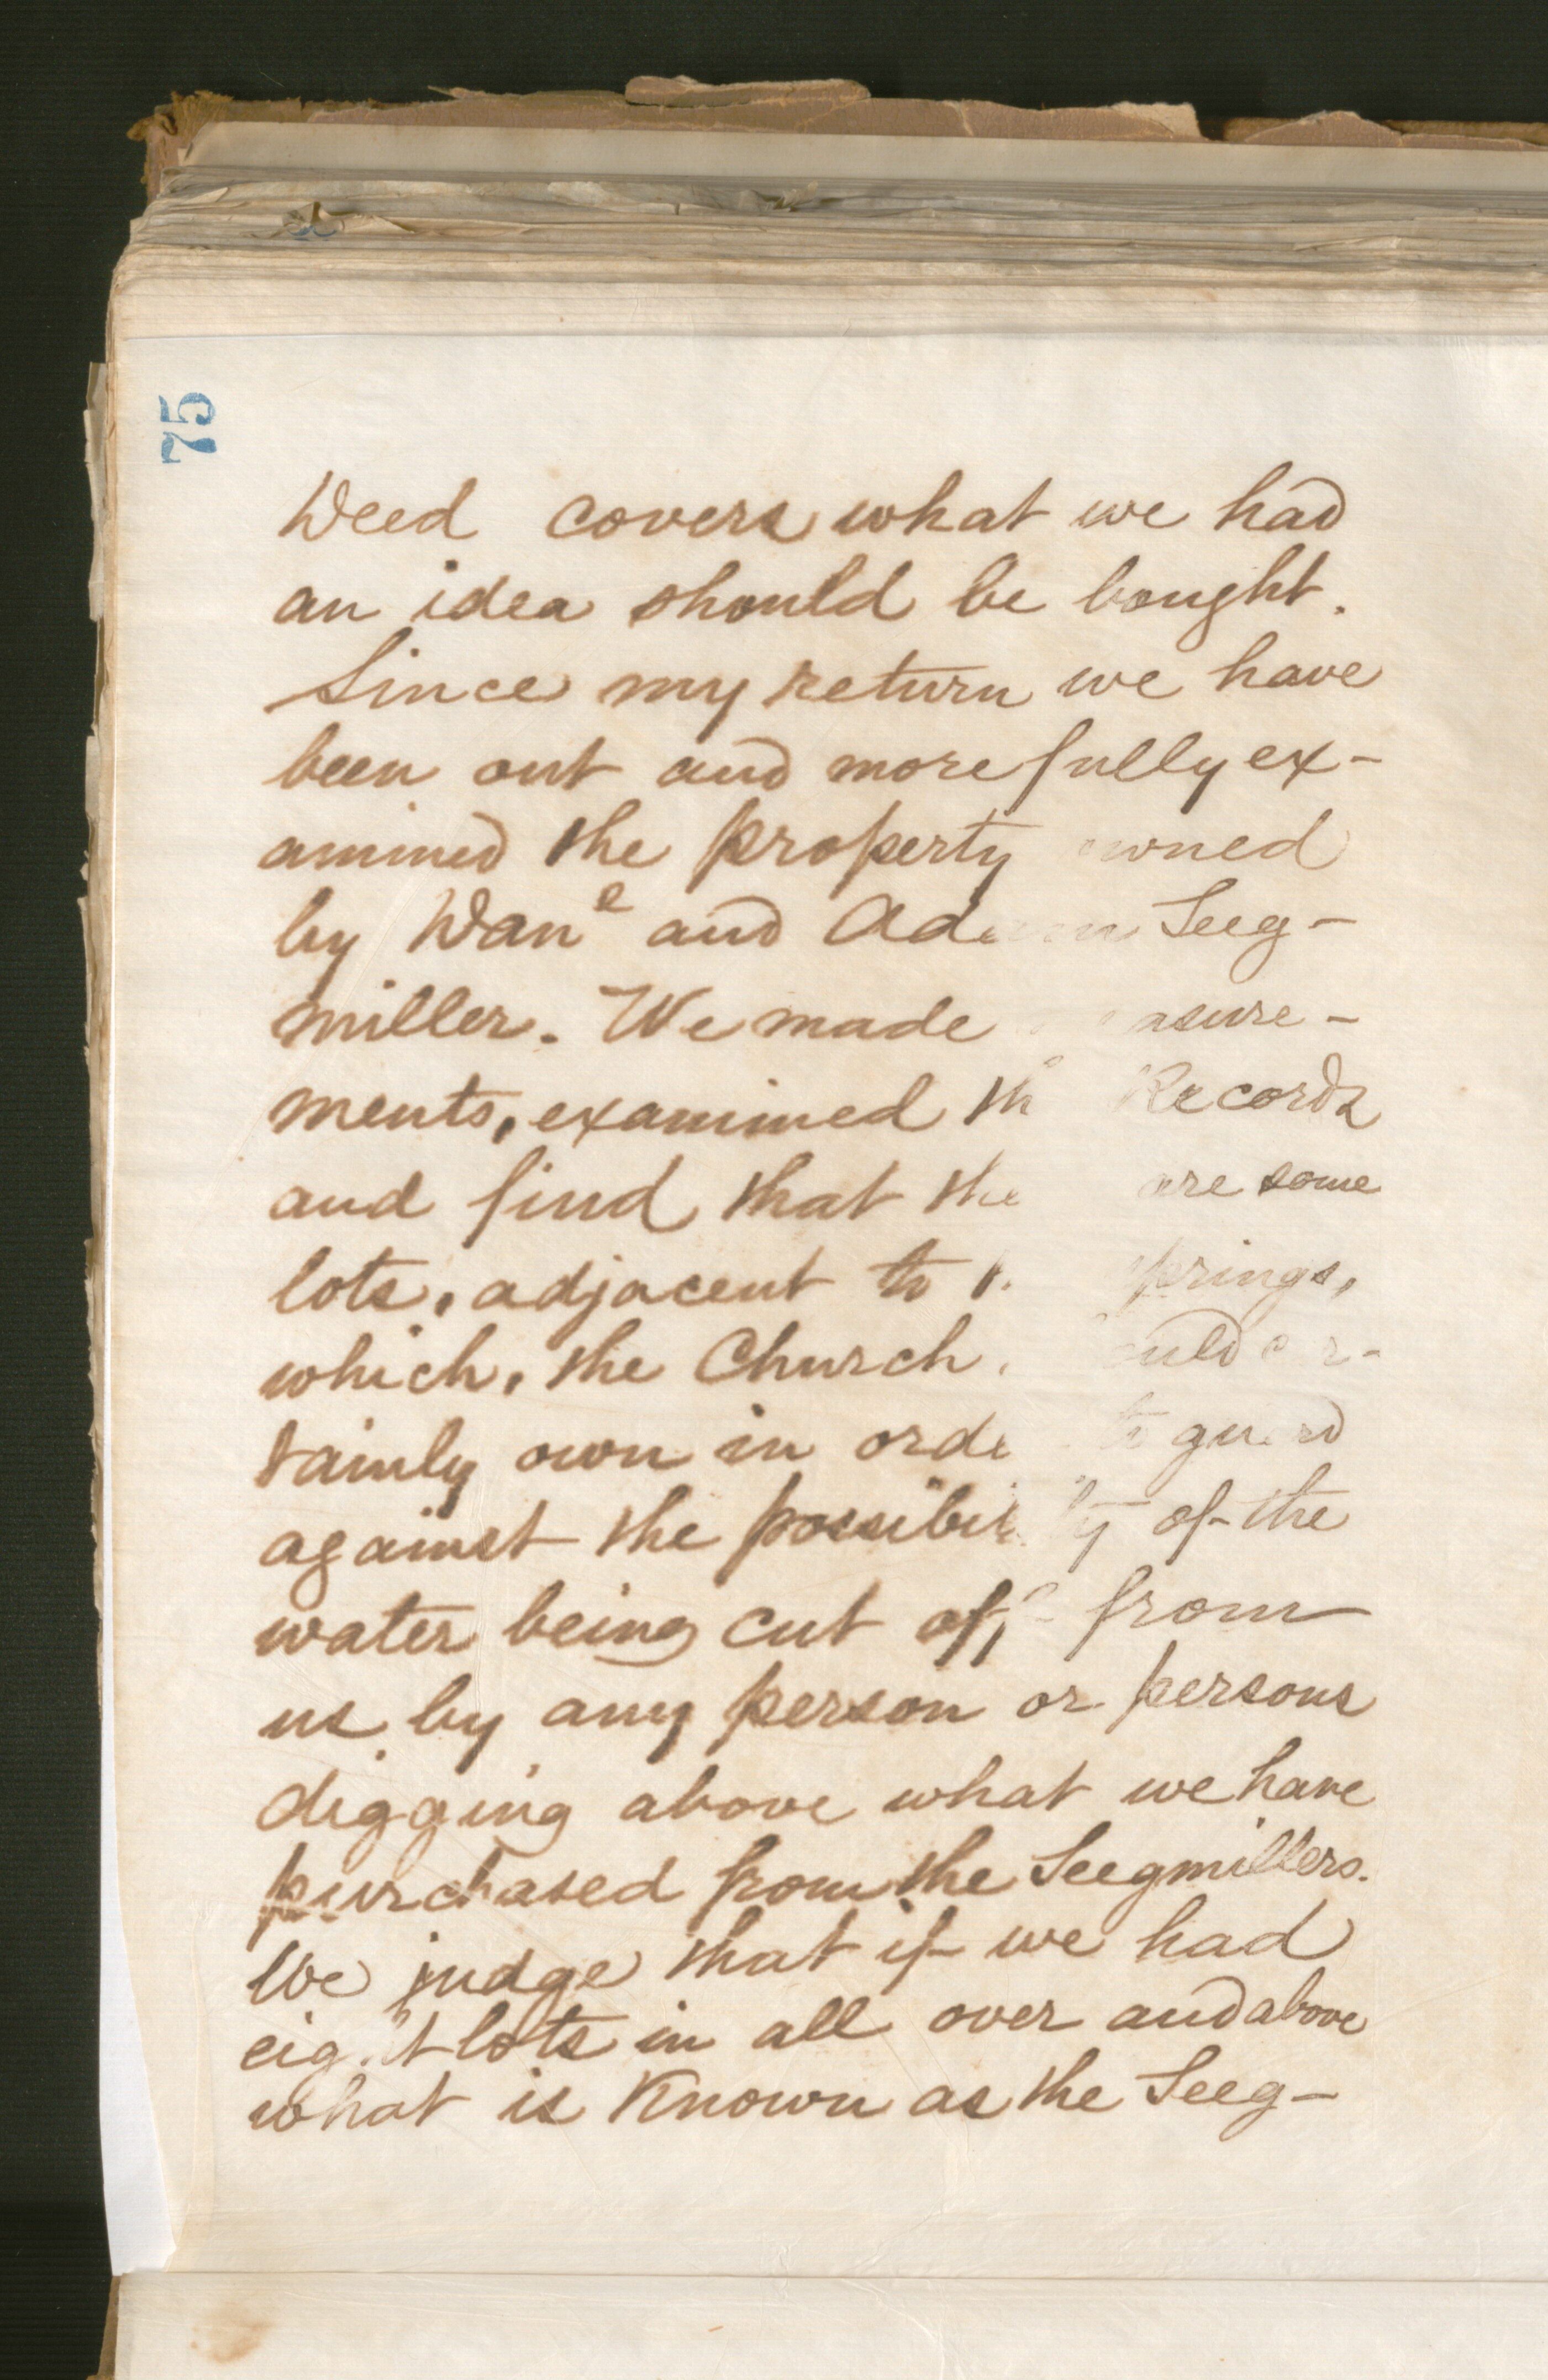 75
Deed covers what we had
an idea should be bought.
Since my return we have
been out and more fully ex-
amined the property owned
by Danl and Adam Seeg-
miller. We made measure-
ments, examined the Records
and find that there are some
lots, adjacent to springs,
which, the Church should cer-
tainly own in order to guard
against the possibility of the
water being cut off from
us by any person or persons
digging above what we have
purchased from the Seegmillers.
We judge that if we had
eight lots in all over and above
what is Known as the Seeg-